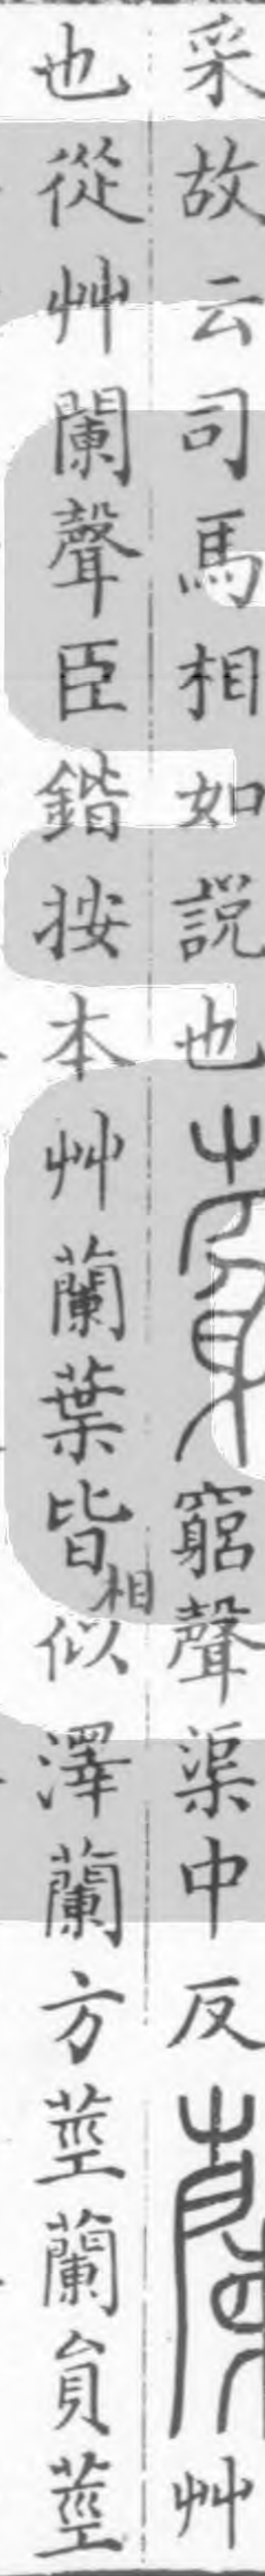 采故云司馬相如說也 竆聲渠中反 艸
也從艸闌聲臣鍇按本艸蘭葉皆相似澤蘭方莖蘭員莖